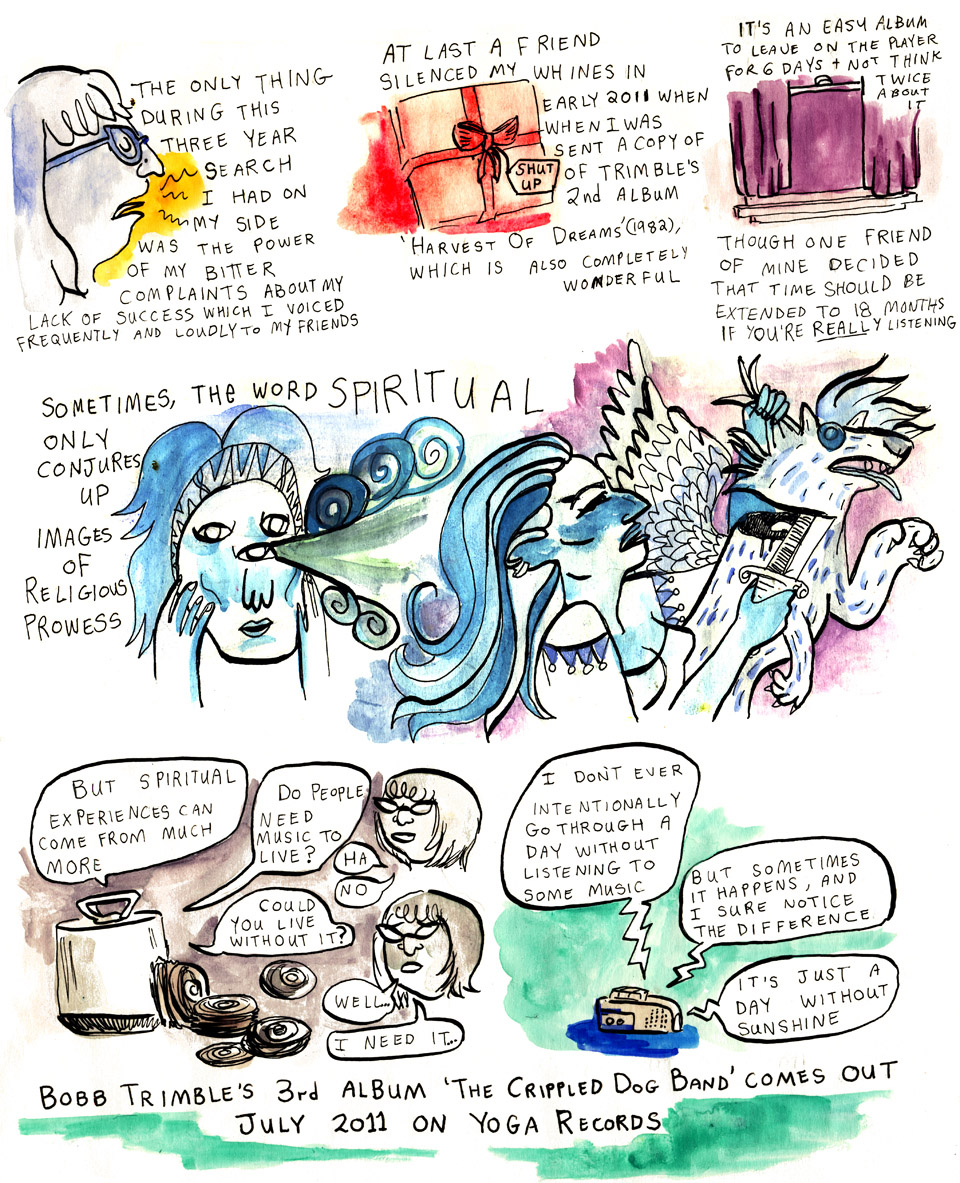 THE ONLY THING
DURING THIS
THREE YEAR
SEARCH
I HAD ON
MY SIDE
WAS THE POWER
OF MY BITTER
COMPLAINTS ABOUT MY
LACK OF SUCCESS WHICH I VOICED
FREQUENTLY AND LOUDLY TO MY FRIENDS
AT LAST A FRIEND
SILENCED MY WHINES IN
EARLY 2011 WHEN
WHEN I WAS
SENT A COPY OF
OF TRIMBLE'S
2nd ALBUM
'HARVEST OF DREAMS' (1982),
WHICH IS ALSO COMPLETELY
WONDERFUL
SHUT
UP
IT'S AN EASY ALBUM
TO LEAVE ON THE PLAYER
FOR 6 DAYS + NOT THINK
TWICE
ABOUT
IT
THOUGH ONE FRIEND
OF MINE DECIDED
THAT TIME SHOULD BE
EXTENDED TO 18 MONTHS
IF YOU'RE REALLY LISTENING
SOMETIMES, THE WORD SPIRITUAL
ONLY
CONJURES
UP
IMAGES
OF
RELIGIOUS
PROWESS
BUT SPIRITUAL
EXPERIENCES CAN
COME FROM MUCH
MORE
DO PEOPLE
NEED
MUSIC TO
LIVE?
HA
NO
COULD
YOU LIVE
WITHOUT IT?
WELL...
I NEED IT...
I DON'T EVER
INTENTIONALLY
GO THROUGH A
DAY WITHOUT
LISTENING TO
SOME MUSIC
BUT SOMETIMES
IT HAPPENS, AND
I SURE NOTICE
THE DIFFERENCE.
IT'S JUST A
DAY WITHOUT
SUNSHINE
BOBB TRIMBLE'S 3rd ALBUM 'THE CRIPPLED DOG BAND' COMES OUT
JULY 2011 ON YOGA RECORDS